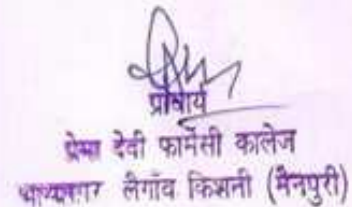 प्राचार्य
प्रेमा देवी फार्मेसी कालेज
लैगॉव किशनी (मैनपुरी)